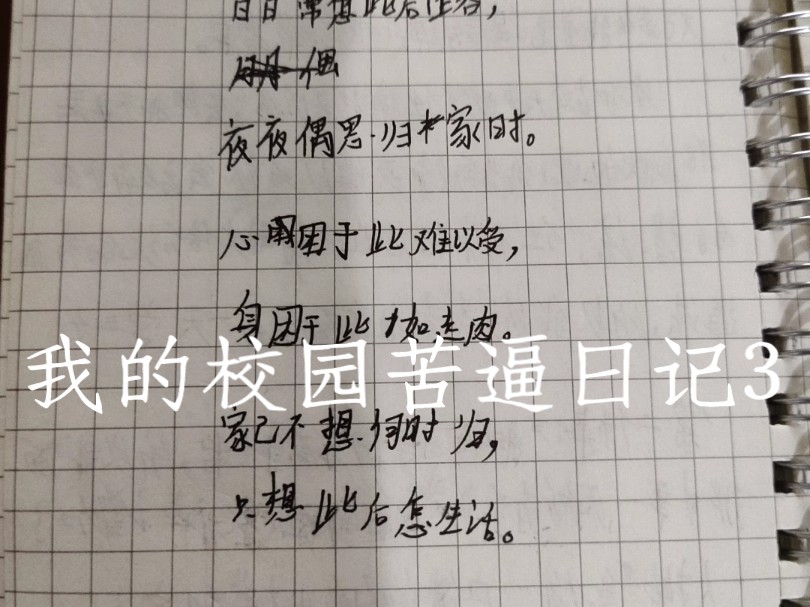 日日常想此后生活，
夜夜偶思归家时。
心困于此难以受，
身困于此如走肉。
我的校园苦逼日记3
家已不想何时归，
只想此后怎生活。